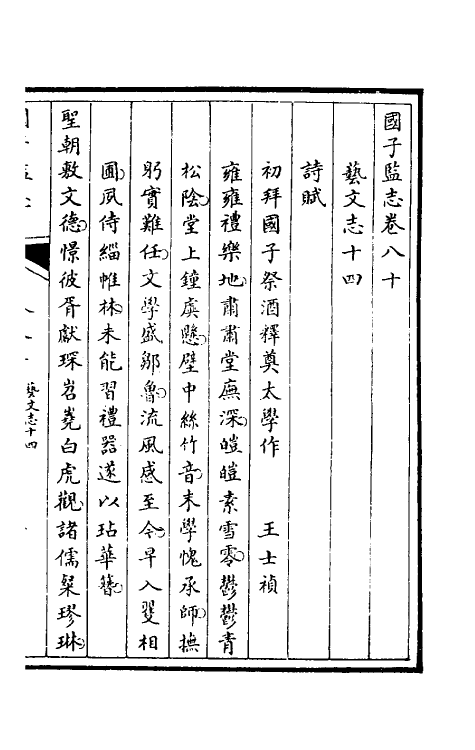 國子監志卷八十
藝文志十四
詩賦
初拜國子祭酒釋奠太學作　王士禎
雍雍禮樂地肅肅堂廡深皚皚素雪零鬱鬱青
松陰堂上鐘虡懸壁中絲竹音末學愧承師撫
躬實難任文學盛鄒魯流風感至今早入瞿相
圃夙侍緇帷林未能習禮器遂以玷華簪
聖朝敷文德憬彼胥獻琛岧嶤白虎觀諸儒粲璆琳
藝文志十四